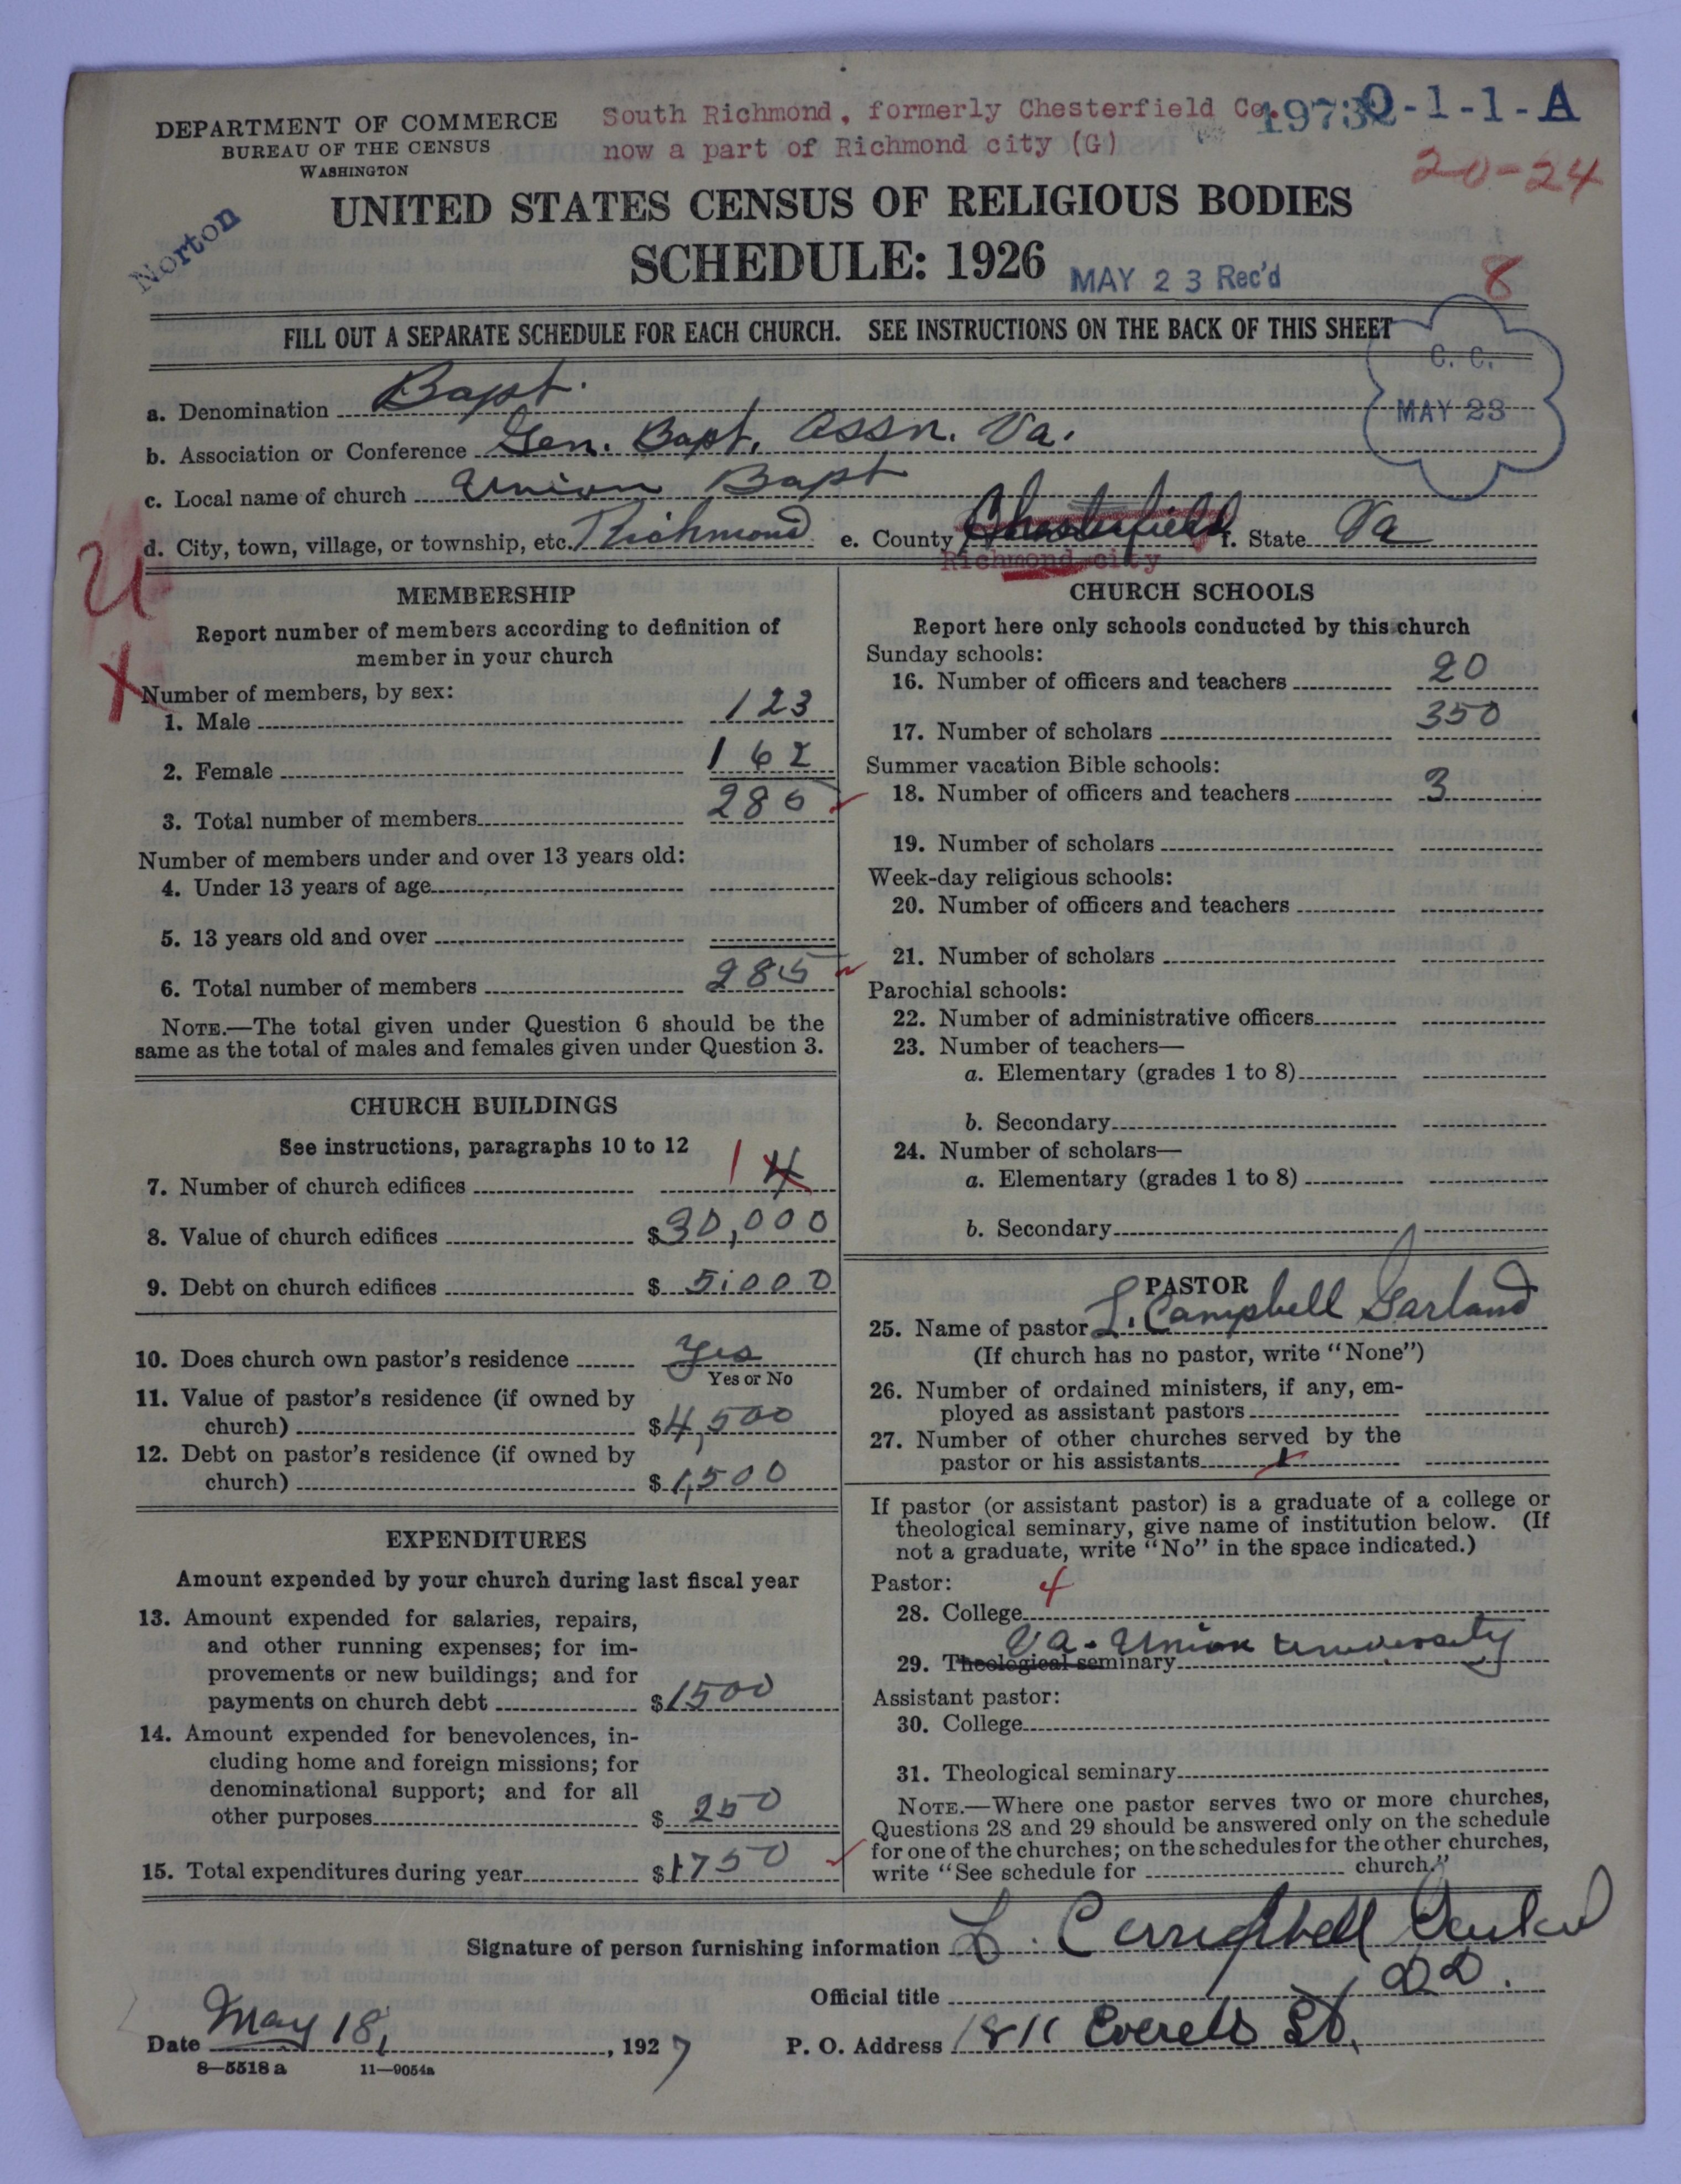 DEPARTMENT OF COMMERCE
BUREAU OF THE CENSUS
WASHINGTON
South Richmond, formerly Chesterfield Co.
now a part of Richmond city (G)
0-1-1-A
20-24
Norton
UNITED STATES CENSUS OF RELIGIOUS BODIES
SCHEDULE: 1926
MAY 23 Rec'd
8
FILL OUT A SEPARATE SCHEDULE FOR EACH CHURCH. SEE INSTRUCTIONS ON THE BACK OF THIS SHEET
C. C.
MAY 23
a. Denomination Bapt.
b. Association or Conference Gen. Bapt. Assn. Va.
c. Local name of church Union Bapt
d. City, town, village, or township, etc. Richmond e. County Chesterfield f. State Va
Richmond city
MEMBERSHIP
Report number of members according to definition of
member in your church
Number of members, by sex:
1. Male 123
2. Female 162
3. Total number of members 285
Number of members under and over 13 years old:
4. Under 13 years of age
5. 13 years old and over
6. Total number of members 285
NOTE.—The total given under Question 6 should be the
same as the total of males and females given under Question 3.
CHURCH BUILDINGS
See instructions, paragraphs 10 to 12
7. Number of church edifices 1 4
8. Value of church edifices $30,000
9. Debt on church edifices $5,000
10. Does church own pastor's residence Yes
Yes or No
11. Value of pastor's residence (if owned by
church) $4,500
12. Debt on pastor's residence (if owned by
church) $1,500
EXPENDITURES
Amount expended by your church during last fiscal year
13. Amount expended for salaries, repairs,
and other running expenses; for im-
provements or new buildings; and for
payments on church debt $1500
14. Amount expended for benevolences, in-
cluding home and foreign missions; for
denominational support; and for all
other purposes $250
15. Total expenditures during year $1750
CHURCH SCHOOLS
Report here only schools conducted by this church
Sunday schools:
16. Number of officers and teachers 20
17. Number of scholars 350
Summer vacation Bible schools:
18. Number of officers and teachers 3
19. Number of scholars
Week-day religious schools:
20. Number of officers and teachers
21. Number of scholars
Parochial schools:
22. Number of administrative officers
23. Number of teachers—
a. Elementary (grades 1 to 8)
b. Secondary
24. Number of scholars—
a. Elementary (grades 1 to 8)
b. Secondary
PASTOR
25. Name of pastor L. Campbell Garland
(If church has no pastor, write "None")
26. Number of ordained ministers, if any, em-
ployed as assistant pastors
27. Number of other churches served by the
pastor or his assistants 1
If pastor (or assistant pastor) is a graduate of a college or
theological seminary, give name of institution below. (If
not a graduate, write "No" in the space indicated.)
Pastor: 4
28. College
Va. Union University
29. Theological seminary
Assistant pastor:
30. College
31. Theological seminary
NOTE.—Where one pastor serves two or more churches,
Questions 28 and 29 should be answered only on the schedule
for one of the churches; on the schedules for the other churches,
write "See schedule for church."
Signature of person furnishing information L. Campbell Garland
Official title D.D.
Date May 18, 1927 P. O. Address 1811 Everett St.
8—5518 a 11—9054a